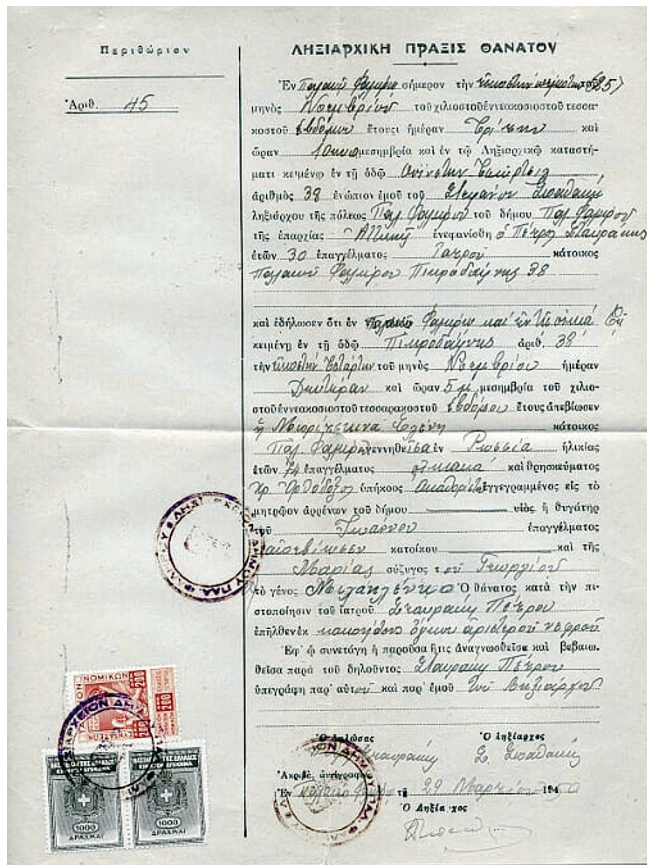 Περιθώριον
Ἀριθ. 45
ΛΗΞΙΑΡΧΙΚΗ ΠΡΑΞΙΣ ΘΑΝΑΤΟΥ
Ἐν Παλαιῷ Φαλήρῳ σήμερον τὴν εἰκοστὴν πέμπτην (25)
μηνὸς Νοεμβρίου τοῦ χιλιοστοῦ ἐννεακοσιοστοῦ τεσσα-
κοστοῦ ἑβδόμου ἔτους ἡμέραν Τρίτην καὶ
ὥραν 10 π.μ. μεσημβρία καὶ ἐν τῷ Ληξιαρχικῷ καταστή-
ματι κειμένῳ ἐν τῇ ὁδῷ
ἀριθμὸς 38 ἐνώπιον ἐμοῦ τοῦ Στεφάνου Σπαθάκη
ληξιάρχου τῆς πόλεως Παλ. Φαλήρου τοῦ δήμου Παλ. Φαλήρου
τῆς ἐπαρχίας Ἀττικῆς ἐνεφανίσθη ὁ Πέτρος Σταυράκης
ἐτῶν 30 ἐπαγγέλματος Ἰατροῦ κάτοικος
Παλαιοῦ Φαλήρου Πικροδάφνης 38
καὶ ἐδήλωσεν ὅτι ἐν Παλαιῷ Φαλήρῳ καὶ ἐν τῇ οἰκίᾳ
κειμένῃ ἐν τῇ ὁδῷ Πικροδάφνης ἀριθ. 38
τὴν εἰκοστὴν τετάρτην τοῦ μηνὸς Νοεμβρίου ἡμέραν
Δευτέραν καὶ ὥραν 5 μ. μεσημβρία τοῦ χιλιο-
στοῦ ἐννεακοσιοστοῦ τεσσαρακοστοῦ ἑβδόμου ἔτους ἀπεβίωσεν
ἡ Ἑλένη κάτοικος
Παλ. Φαλήρου γεννηθεῖσα ἐν Ρωσσίᾳ ἡλικίας
ἐτῶν 74 ἐπαγγέλματος οἰκιακὰ καὶ θρησκεύματος
Χρ. Ὀρθοδόξου ὑπήκοος ἐγγεγραμμένος εἰς τὸ
μητρῷον ἀρρένων τοῦ δήμου υἱὸς ἢ θυγάτηρ
τοῦ Ἰωάννου ἐπαγγέλματος
κατοίκου καὶ τῆς
Μαρίας σύζυγος τοῦ Γεωργίου
τὸ γένος Ὁ θάνατος κατὰ τὴν πι-
στοποίησιν τοῦ ἰατροῦ Σταυράκη Πέτρου
ἐπῆλθεν ἐκ κακοήθους ὄγκου ἀριστεροῦ νεφροῦ
Ἐφ' ᾧ συνετάγη ἡ παροῦσα ἥτις ἀναγνωσθεῖσα καὶ βεβαιω-
θεῖσα παρὰ τοῦ δηλοῦντος Σταυράκη Πέτρου
ὑπεγράφη παρ' αὐτοῦ καὶ παρ' ἐμοῦ τοῦ Ληξιάρχου
Ὁ δηλώσας Ὁ ληξίαρχος
Σταυράκης Σ. Σπαθάκης
Ἀκριβὲς ἀντίγραφον
Ἐν Παλαιῷ Φαλήρῳ τῇ 29 Μαρτίου 19
Ὁ Ληξίαρχος
200
200
1000
ΔΡΑΧΜΑΙ
1000
ΔΡΑΧΜΑΙ